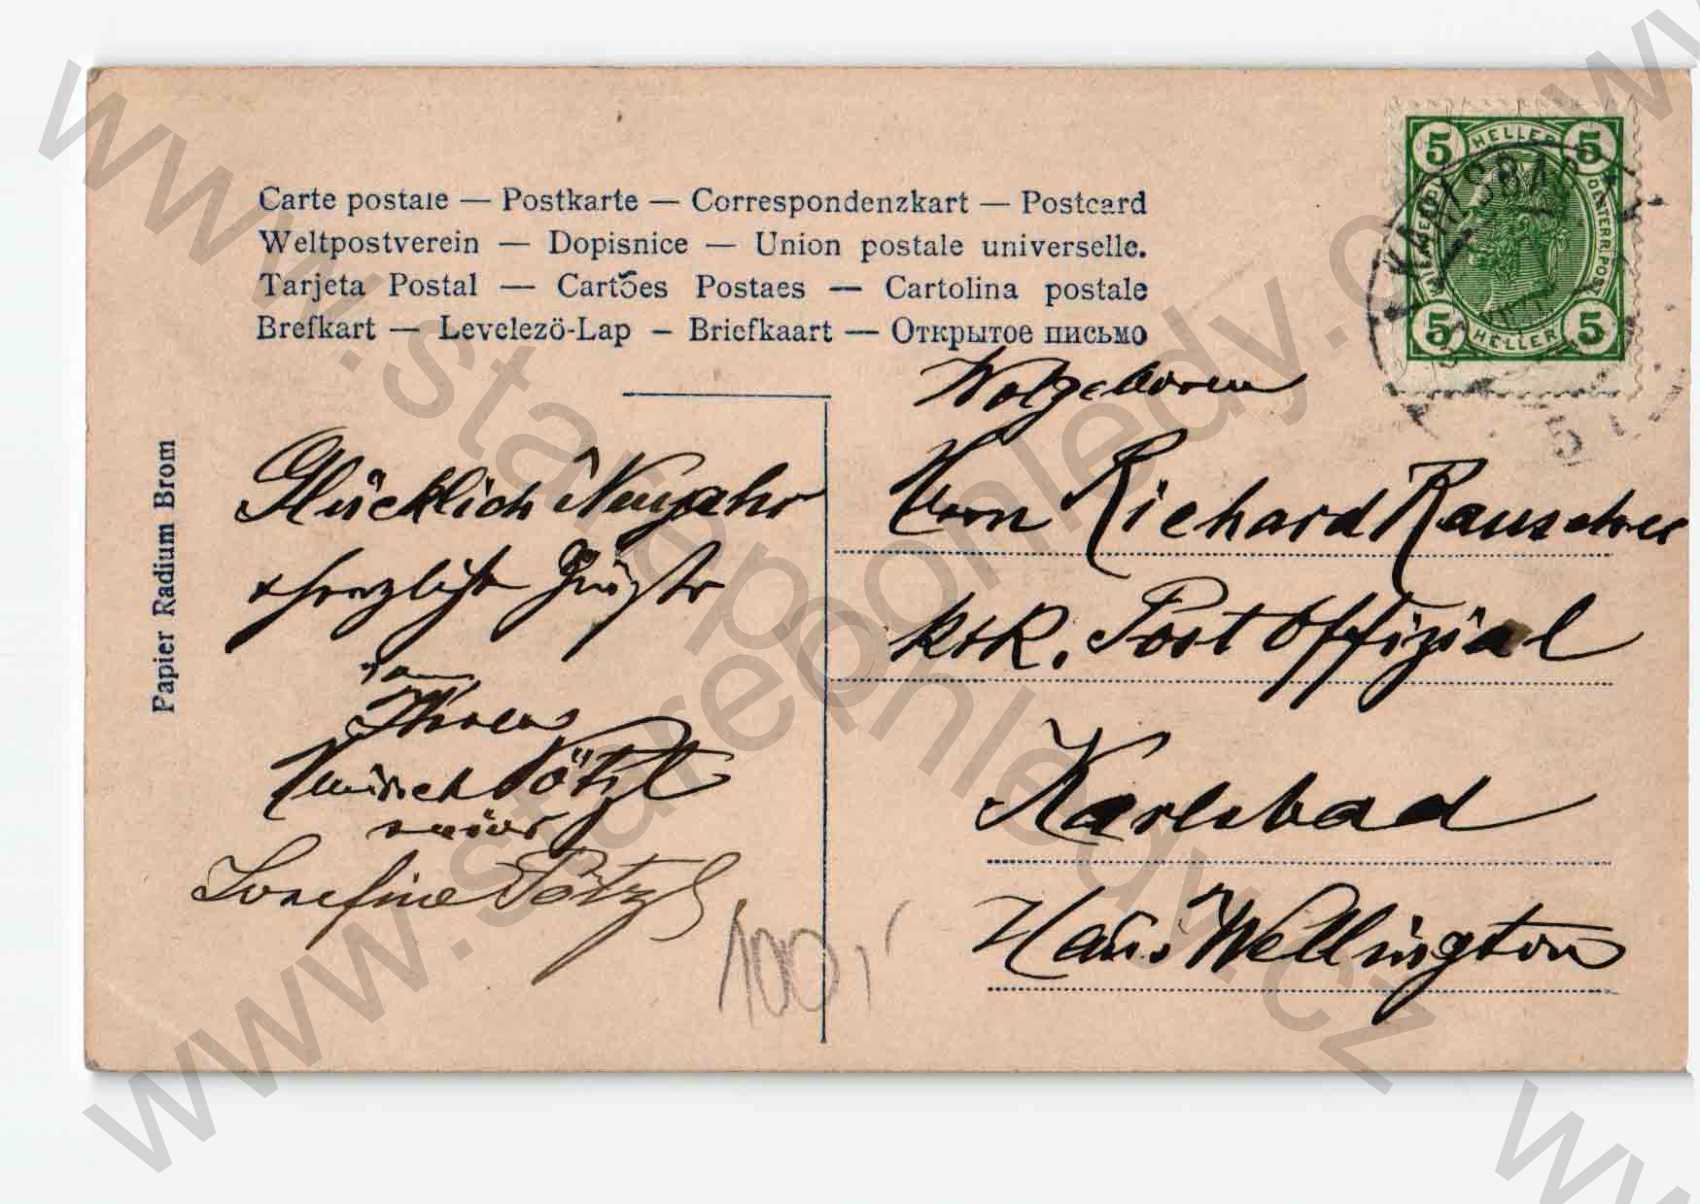 Carte postale — Postkarte — Correspondenzkart — Postcard
Weltpostverein — Dopisnice — Union postale universelle.
Tarjeta Postal — Cartões Postaes — Cartolina postale
Brefkart — Levelezö-Lap — Briefkaart — Открытое письмо
Papier Radium Brom
5 HELLER 5
5 HELLER 5
KARLSBAD
Wolgeboren
Herrn Richard Rauscher
k+k. Post Offizial
Karlsbad
Haus Wellington
Glücklich Neujahr
+ herzliche Grüße
von
Ihren
Pötzl
Josefine Pötzl
100,
www.starepohledy.cz
www.starepohledy.cz